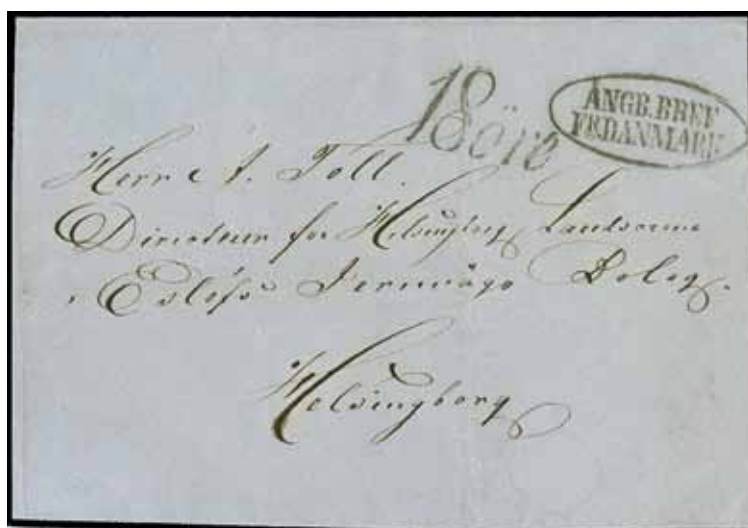 18 öre
ANGB. BREF
FR. DANMARK
Herr A. Toll.
Directeur for Helsingborg Landscrona
Eslöfs Jernvägs Bolag.
Helsingborg